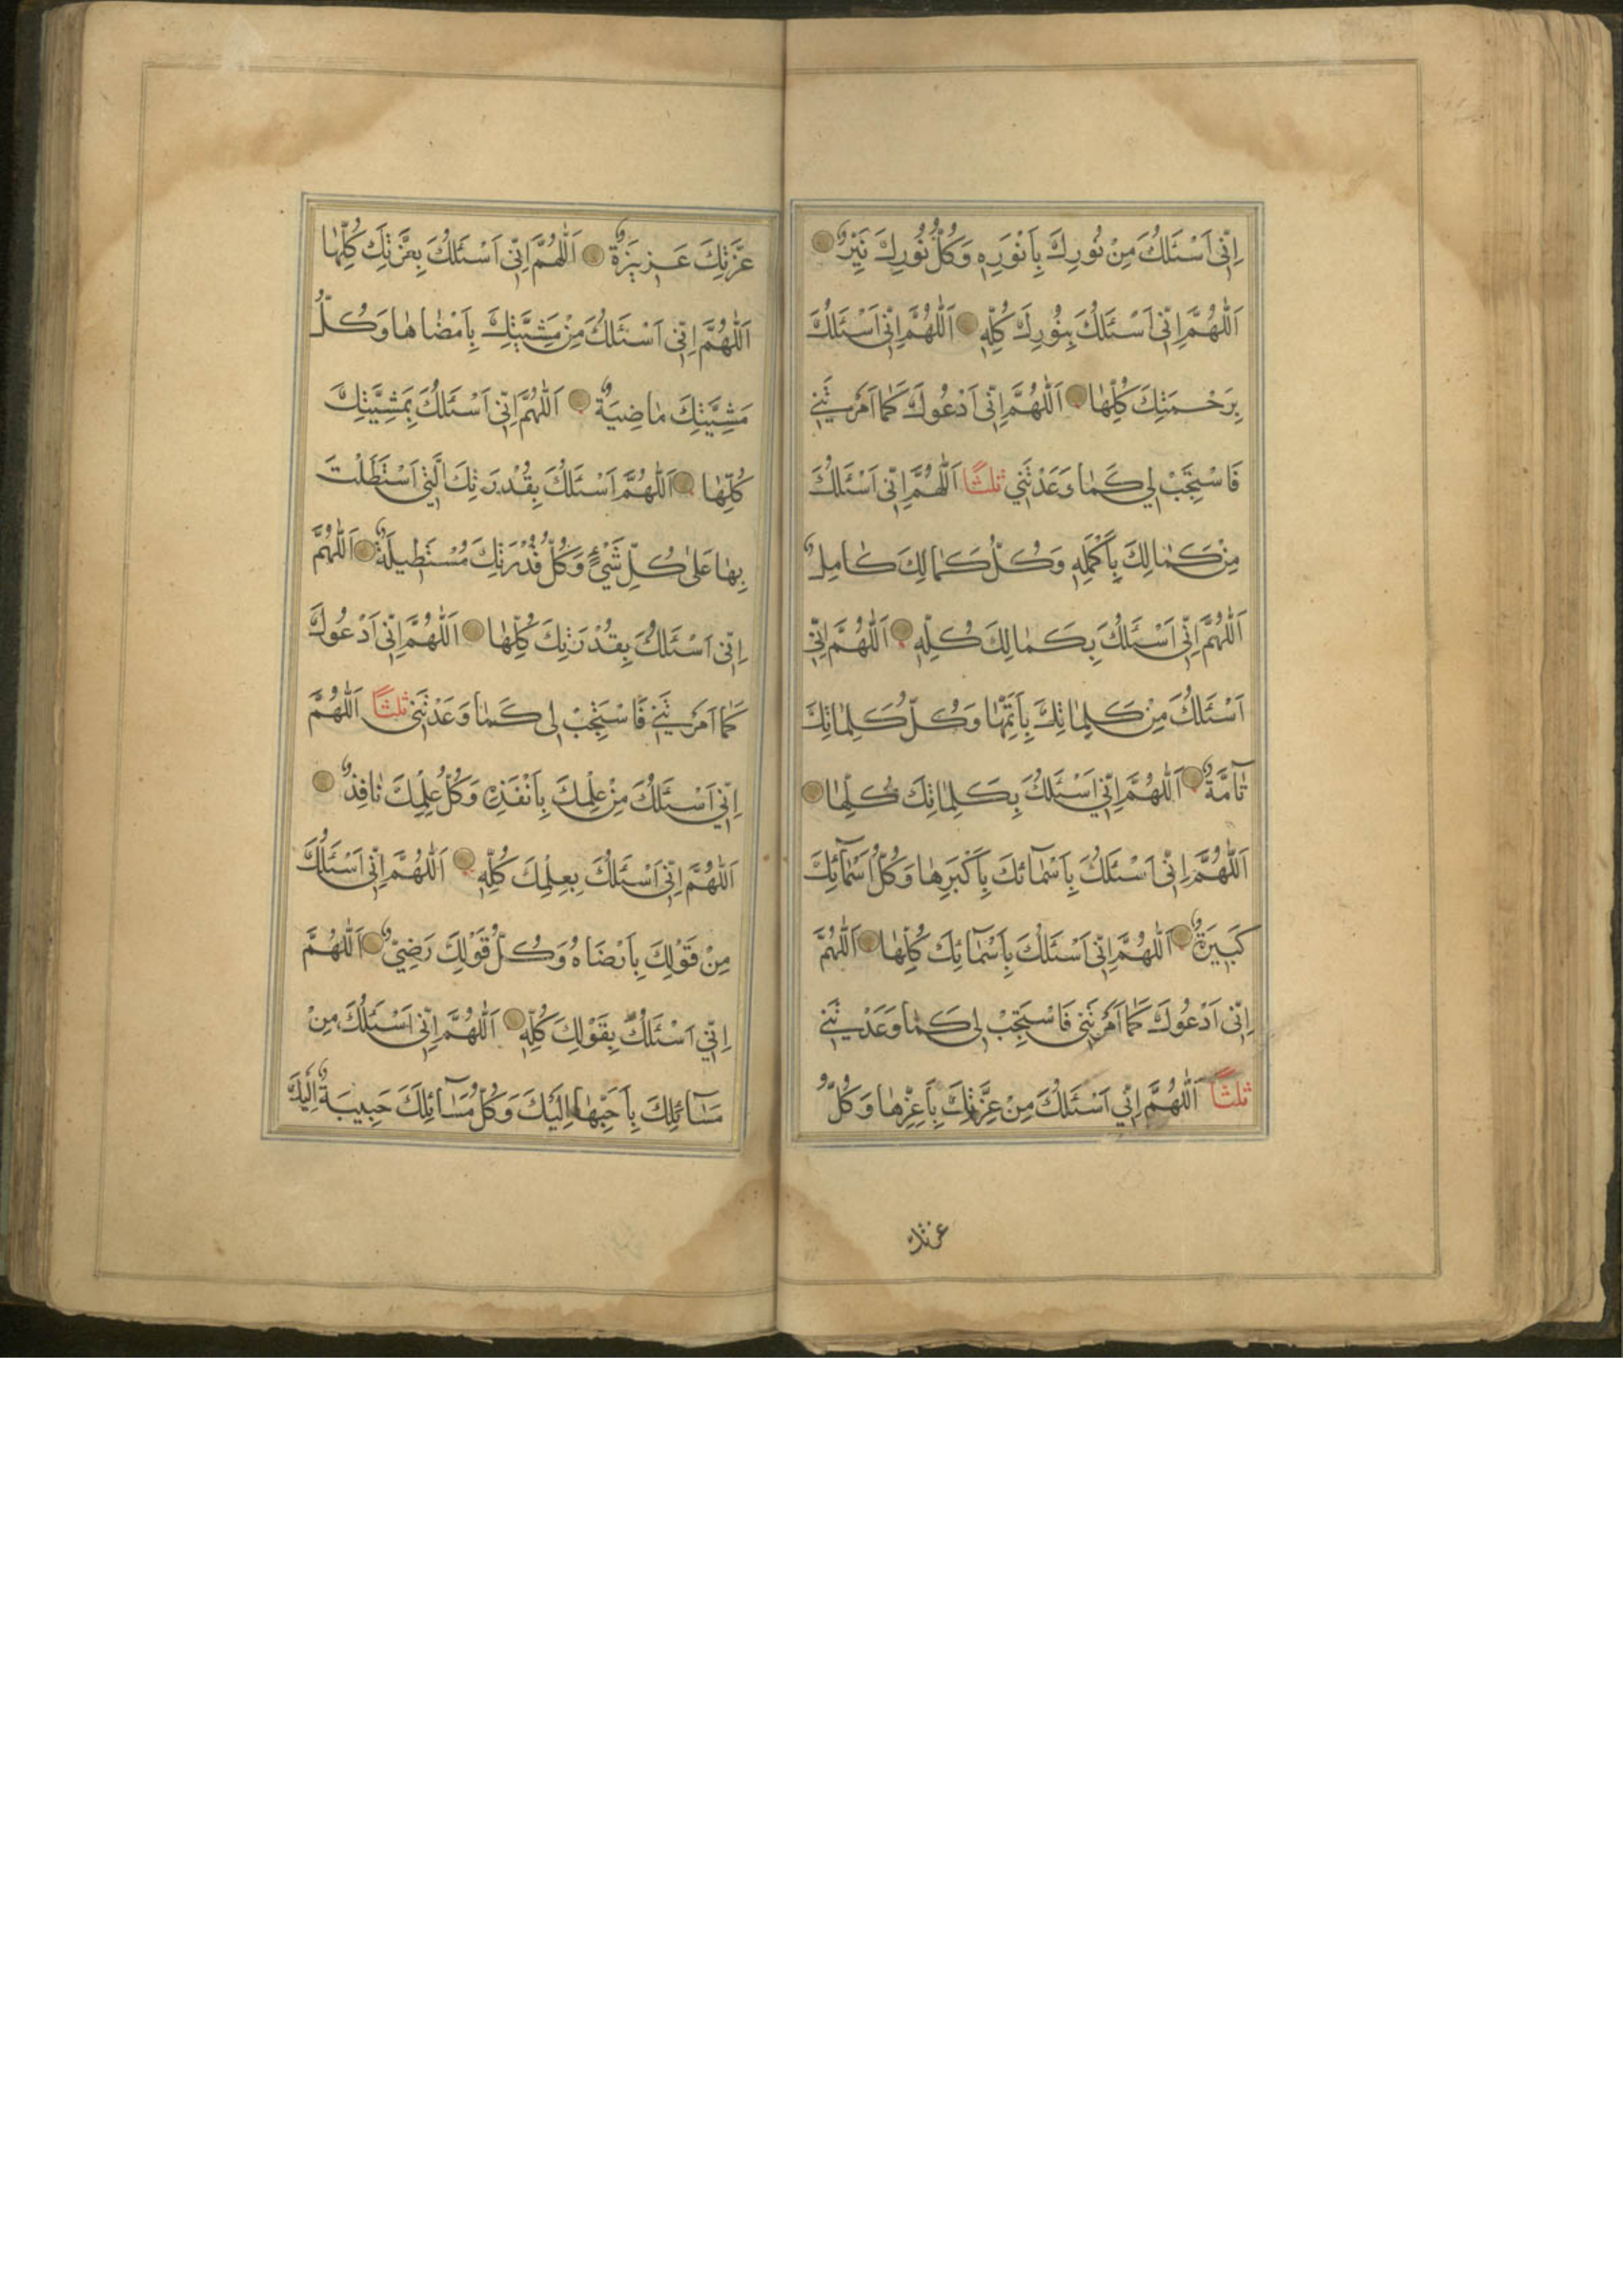 اِنّی اَسْئَلُكَ مِنْ نُورِكَ بِاَنْوَرِهِ وَكُلُّ نُورِكَ نَیِّرٌ
اَللّٰهُمَّ اِنّی اَسْئَلُكَ بِنُورِكَ كُلِّهِ اَللّٰهُمَّ اِنّی اَسْئَلُكَ
بِرَحْمَتِكَ كُلِّهٰا اَللّٰهُمَّ اِنّی اَدْعُوكَ كَمٰا اَمَرْتَنی
فَاسْتَجِبْ لی كَمٰا وَعَدْتَنی ثلثًا اَللّٰهُمَّ اِنّی اَسْئَلُكَ
مِنْ كَمٰالِكَ بِاَكْمَلِهِ وَكُلُّ كَمٰالِكَ كٰامِلٌ
اَللّٰهُمَّ اِنّی اَسْئَلُكَ بِكَمٰالِكَ كُلِّهِ اَللّٰهُمَّ اِنّی
اَسْئَلُكَ مِنْ كَلِمٰاتِكَ بِاَتَمِّهٰا وَكُلُّ كَلِمٰاتِكَ
تٰآمَّةٌ اَللّٰهُمَّ اِنّی اَسْئَلُكَ بِكَلِمٰاتِكَ كُلِّهٰا
اَللّٰهُمَّ اِنّی اَسْئَلُكَ بِاَسْمٰآئكَ بِاَكْبَرِهٰا وَكُلُّ اَسْمٰآئِكَ
كَبیرَةٌ اَللّٰهُمَّ اِنّی اَسْئَلُكَ بِاَسْمٰآئِكَ كُلِّهٰا اَللّٰهُمَّ
اِنّی اَدْعُوكَ كَمٰا اَمَرْتَنی فَاسْتَجِبْ لی كَمٰا وَعَدْتَنی
ثلثًا اَللّٰهُمَّ اِنّی اَسْئَلُكَ مِنْ عِزَّتِكَ بِاَعِزِّهٰا وَكُلُّ
عزتك
عِزَّتِكَ عَزیزَةٌ اَللّٰهُمَّ اِنّی اَسْئَلُكَ بِعِزَّتِكَ كُلِّهٰا
اَللّٰهُمَّ اِنّی اَسْئَلُكَ مِنْ مَشِیَّتِكَ بِاَمْضٰاهٰا وَكُلُّ
مَشِیَّتِكَ مٰاضِیَةٌ اَللّٰهُمَّ اِنّی اَسْئَلُكَ بِمَشِیَّتِكَ
كُلِّهٰا اَللّٰهُمَّ اَسْئَلُكَ بِقُدْرَتِكَ الَّتی اَسْتَطَلْتَ
بِهٰا عَلٰی كُلِّ شَیْءٍ وَكُلُّ قُدْرَتِكَ مُسْتَطیلَةٌ اَللّٰهُمَّ
اِنّی اَسْئَلُكَ بِقُدْرَتِكَ كُلِّهٰا اَللّٰهُمَّ اِنّی اَدْعُوكَ
كَمٰا اَمَرْتَنی فَاسْتَجِبْ لی كَمٰا وَعَدْتَنی ثلثًا اَللّٰهُمَّ
اِنّی اَسْئَلُكَ مِنْ عِلْمِكَ بِاَنْفَذِهِ وَكُلُّ عِلْمِكَ نٰافِذٌ
اَللّٰهُمَّ اِنّی اَسْئَلُكَ بِعِلْمِكَ كُلِّهِ اَللّٰهُمَّ اِنّی اَسْئَلُكَ
مِنْ قَوْلِكَ بِاَرْضَاهُ وَكُلُّ قَوْلِكَ رَضِیٌّ اَللّٰهُمَّ
اِنّی اَسْئَلُكَ بِقَوْلِكَ كُلِّهِ اَللّٰهُمَّ اِنّی اَسْئَلُكَ مِنْ
مَسٰآئِلِكَ بِاَحَبِّهٰا اِلَیْكَ وَكُلُّ مَسٰآئِلِكَ حَبیبَةٌ اِلَیْكَ